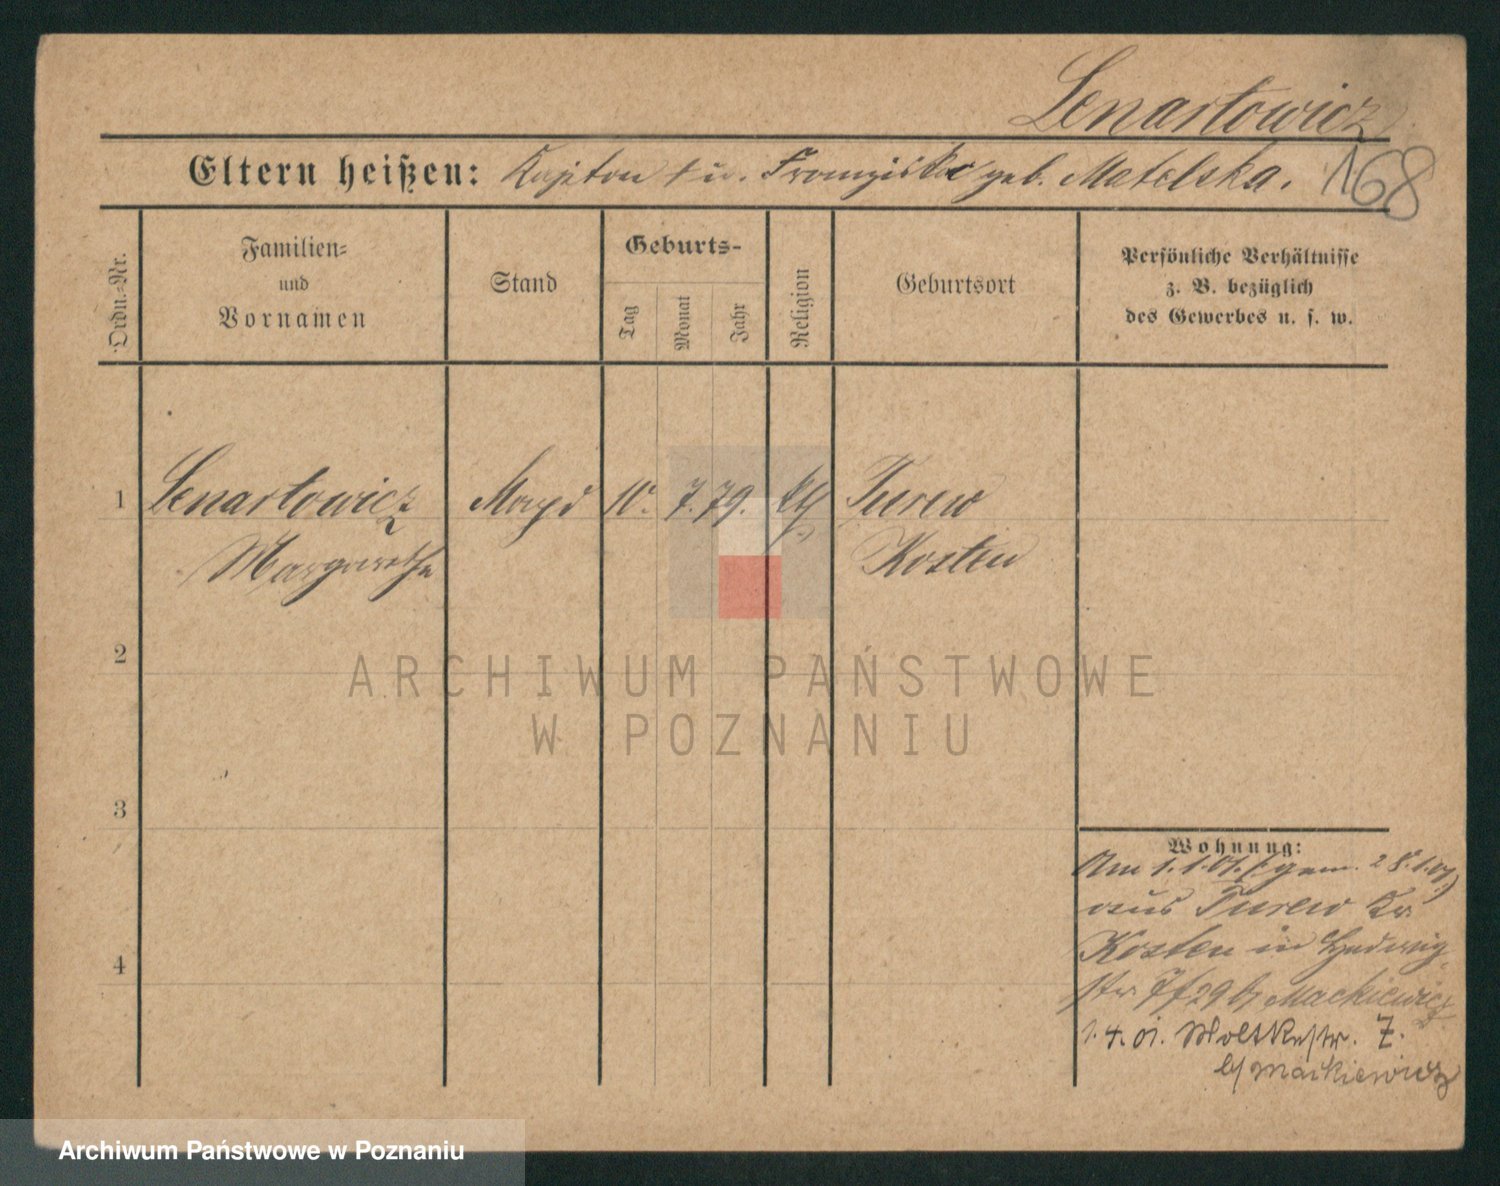 Lenartowicz
Eltern heißen: Kajetan † u. Franziska geb. Matelska. 168
Ordn.-Nr.
Familien-
und
Vornamen
Stand
Geburts-
Tag
Monat
Jahr
Religion
Geburtsort
Persönliche Verhältnisse
z. B. bezüglich
des Gewerbes u. s. w.
1 Lenartowicz Magd 10. 7. 79. kth Turew
Margarethe Kosten
2
3
4
Wohnung:
Am 1.1.01. (gem. 28.1.01)
aus Turew Kr.
Kosten in Hedwig-
str. 7/29 b/ Mackiewicz
1.4.01. Moltkestr. 7.
b/ Mackiewicz
ARCHIWUM PAŃSTWOWE
W POZNANIU
Archiwum Państwowe w Poznaniu